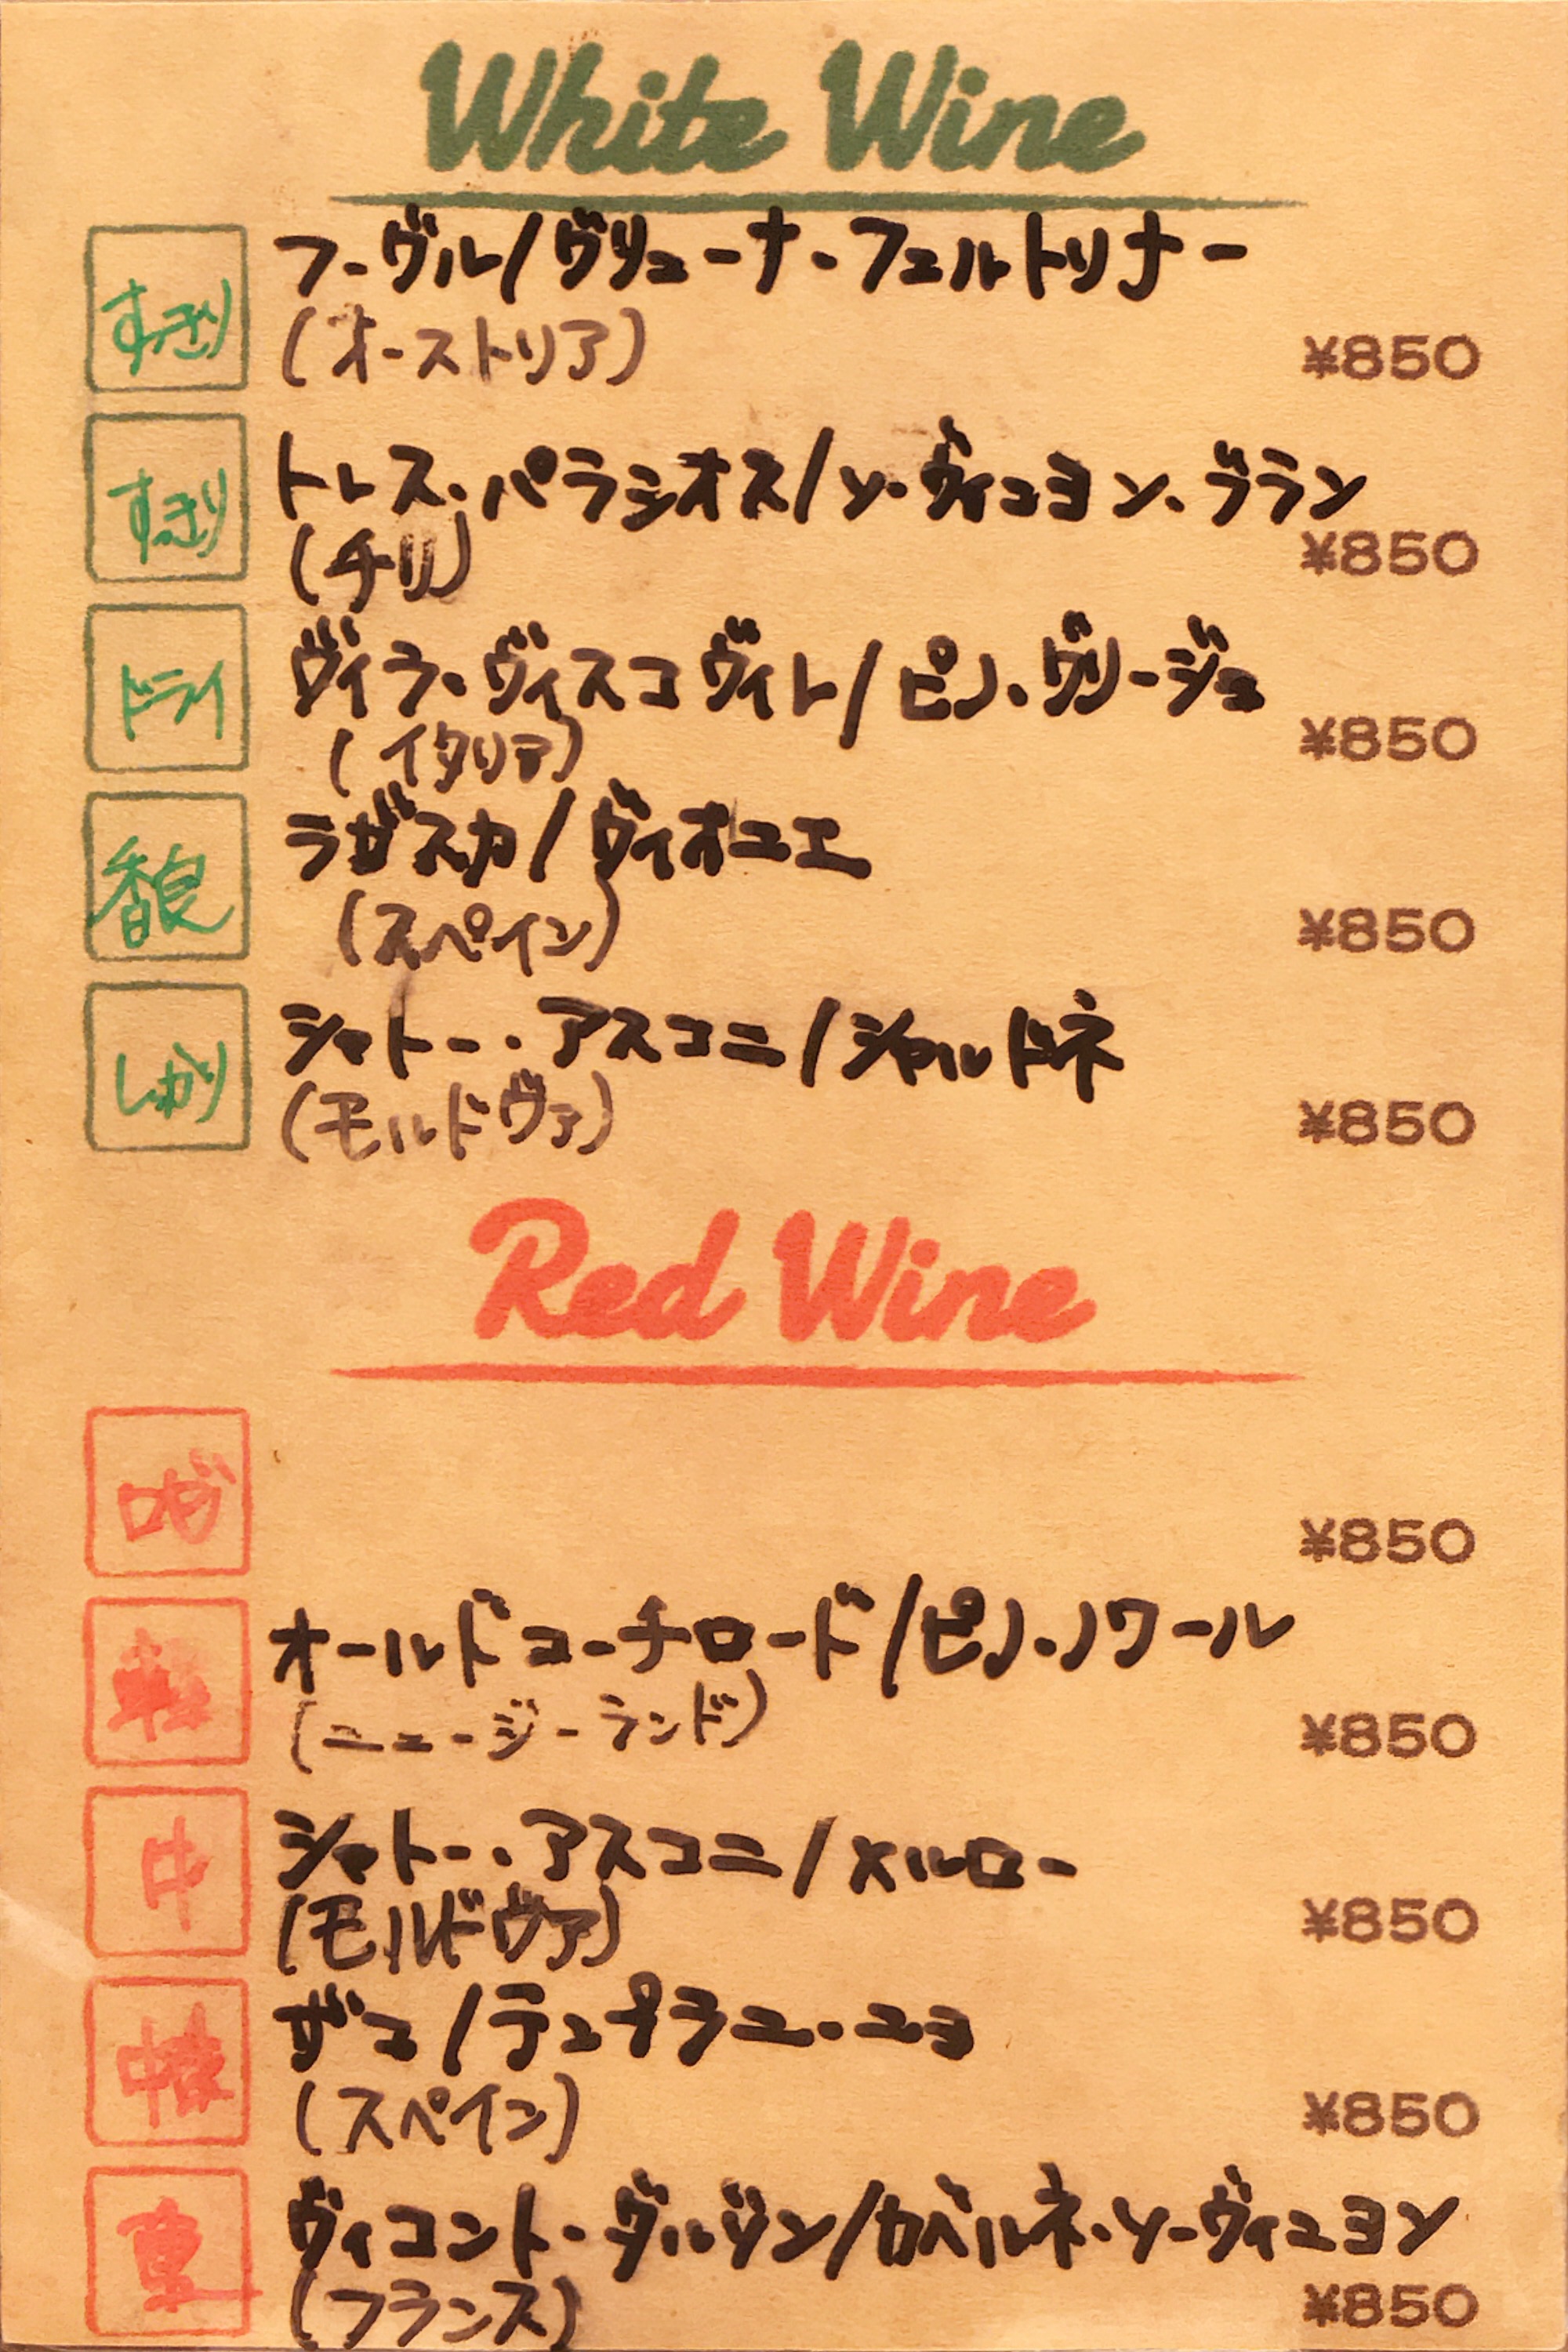 White Wine
すっきり
フーヴル/グリューナー・フェルトリナー
(オーストリア)
¥850
すっきり
トレス・パラシオス/ソーヴィニヨン・ブラン
(チリ)
¥850
ドライ
ヴィラ・ヴィスコヴィト/ピノ・グリージョ
(イタリア)
¥850
ラガスカ/ヴィオニエ
(スペイン)
¥850
シャトー・アスコニ/シャルドネ
(モルドヴァ)
¥850
Red Wine
ロゼ
¥850
軽
オールドコーチロード/ピノ・ノワール
(ニュージーランド)
¥850
中
シャトー・アスコニ/メルロー
(モルドヴァ)
¥850
/テンプラニーニョ
(スペイン)
¥850
重
ヴィコント・ダルザン/カベルネ・ソーヴィニヨン
(フランス)
¥850